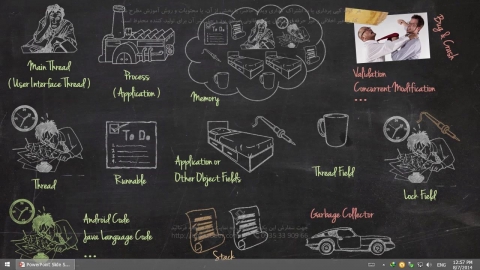 Main Thread
( User Interface Thread )
Process
( Application )
Memory
Bug & Crash
Validation
Concurrent Modification
...
To Do
Thread
Runnable
Application or
Other Object Fields
Thread Field
Lock Field
Android Code
Java Language Code
...
Stack
Garbage Collector
PowerPoint Slide S...
ENG
12:57 PM
8/7/2014